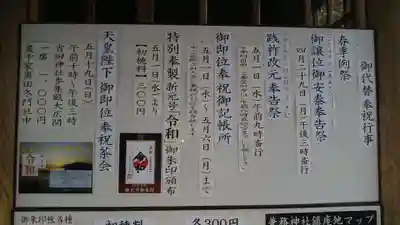 御代替 奉祝行事
春季例祭
御譲位御安泰奉告祭
四月二十九日(月)午後三時斎行
践祚改元奉告祭
五月一日(水)午前九時斎行
御即位奉祝御記帳所
五月一日(水)～五月六日(月)まで
特別奉製 新元号「令和」御朱印頒布
五月一日(水)より
【初穂料】三〇〇円
天皇陛下 御即位奉祝茶会
五月十九日(日)
午前十時～午後三時
吉田神社参集殿大広間
一席 一、〇〇〇円
令和
御朱印帳各種
初穂料
各300円
兼務神社鎮座地マップ